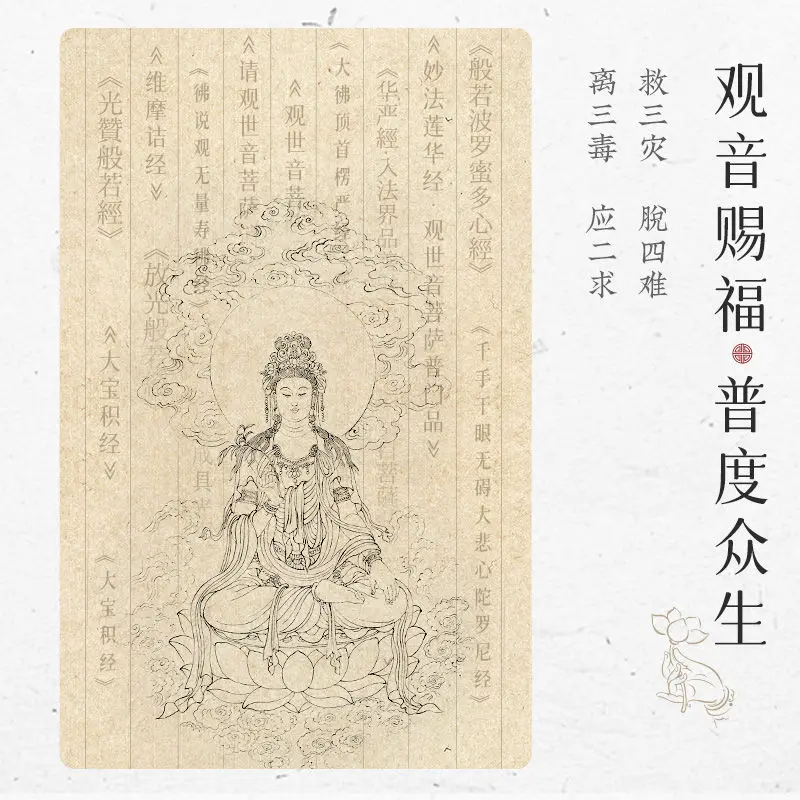 观音赐福·普度众生
救三灾 脫四难
离三毒 应二求
《般若波罗蜜多心經》
《千手千眼无碍大悲心陀罗尼经》
《妙法莲华经 观世音菩萨普门品》
《华严經·入法界品
《大佛顶首楞严经》
《观世音菩
《请观世音菩萨
《佛说观无量寿佛经》
《维摩诘经》
《放光般若
《光贊般若經》
《大宝积经》
《大宝积经》